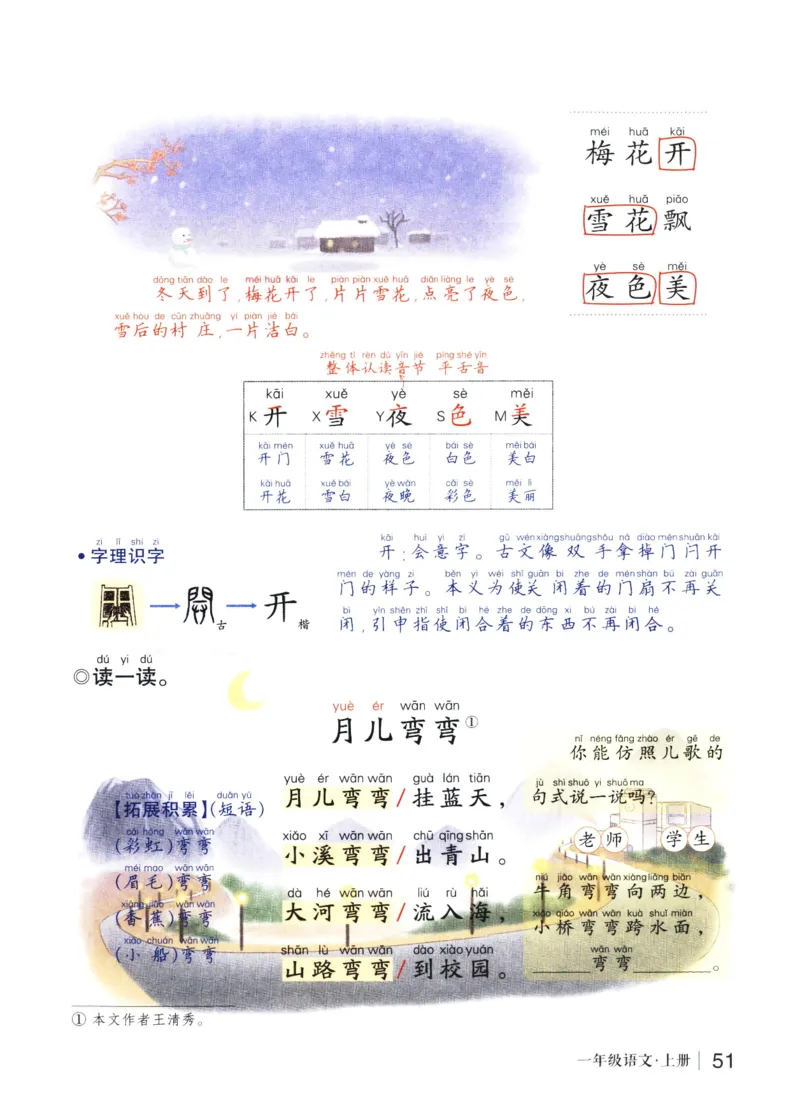 méi huā kāi
梅花开
xuě huā piāo
雪花飘
yè sè měi
夜色美
dōng tiān dào le méi huā kāi le piàn piàn xuě huā diǎn liàng le yè sè
冬天到了,梅花开了,片片雪花,点亮了夜色,
xuě hòu de cūn zhuāng yí piàn jié bái
雪后的村庄,一片洁白。
zhěng tǐ rèn dú yīn jié píng shé yīn
整体认读音节 平舌音
kāi xuě yè sè měi
K开 X雪 Y夜 S色 M美
kāi mén xuě huā yè sè bái sè měi bái
开门 雪花 夜色 白色 美白
kāi huā xuě bái yè wǎn cǎi sè měi lì
开花 雪白 夜晚 彩色 美丽
zì lǐ shí zì
•字理识字
kāi huì yì zì gǔ wén xiàng shuāng shǒu ná diào mén shuān kāi
开:会意字。古文像双手拿掉门闩开
mén de yàng zi běn yì wéi shǐ guān bì zhe de mén shàn bú zài guān
门的样子。本义为使关闭着的门扇不再关
bì yǐn shēn zhǐ shǐ bì hé zhe de dōng xi bú zài bì hé
闭,引申指使闭合着的东西不再闭合。
開古 开楷
dú yi dú
◎读一读。
yuè ér wān wān
月儿弯弯①
yuè ér wān wān guà lán tiān
月儿弯弯/挂蓝天,
xiǎo xī wān wān chū qīng shān
小溪弯弯/出青山。
dà hé wān wān liú rù hǎi
大河弯弯/流入海,
shān lù wān wān dào xiào yuán
山路弯弯/到校园。
tuò zhǎn jī lěi duǎn yǔ
【拓展积累】(短语)
cǎi hóng wān wān
(彩虹)弯弯
méi mao wān wān
(眉毛)弯弯
xiāng jiāo wān wān
(香蕉)弯弯
xiǎo chuán wān wān
(小船)弯弯
nǐ néng fǎng zhào ér gē de
你能仿照儿歌的
jù shì shuō yi shuō ma
句式说一说吗?
老师 学生
niú jiǎo wān wān xiàng liǎng biān
牛角弯弯向两边,
xiǎo qiáo wān wān kuà shuǐ miàn
小桥弯弯跨水面,
wān wān
______弯弯________。
① 本文作者王清秀。
一年级语文·上册 51